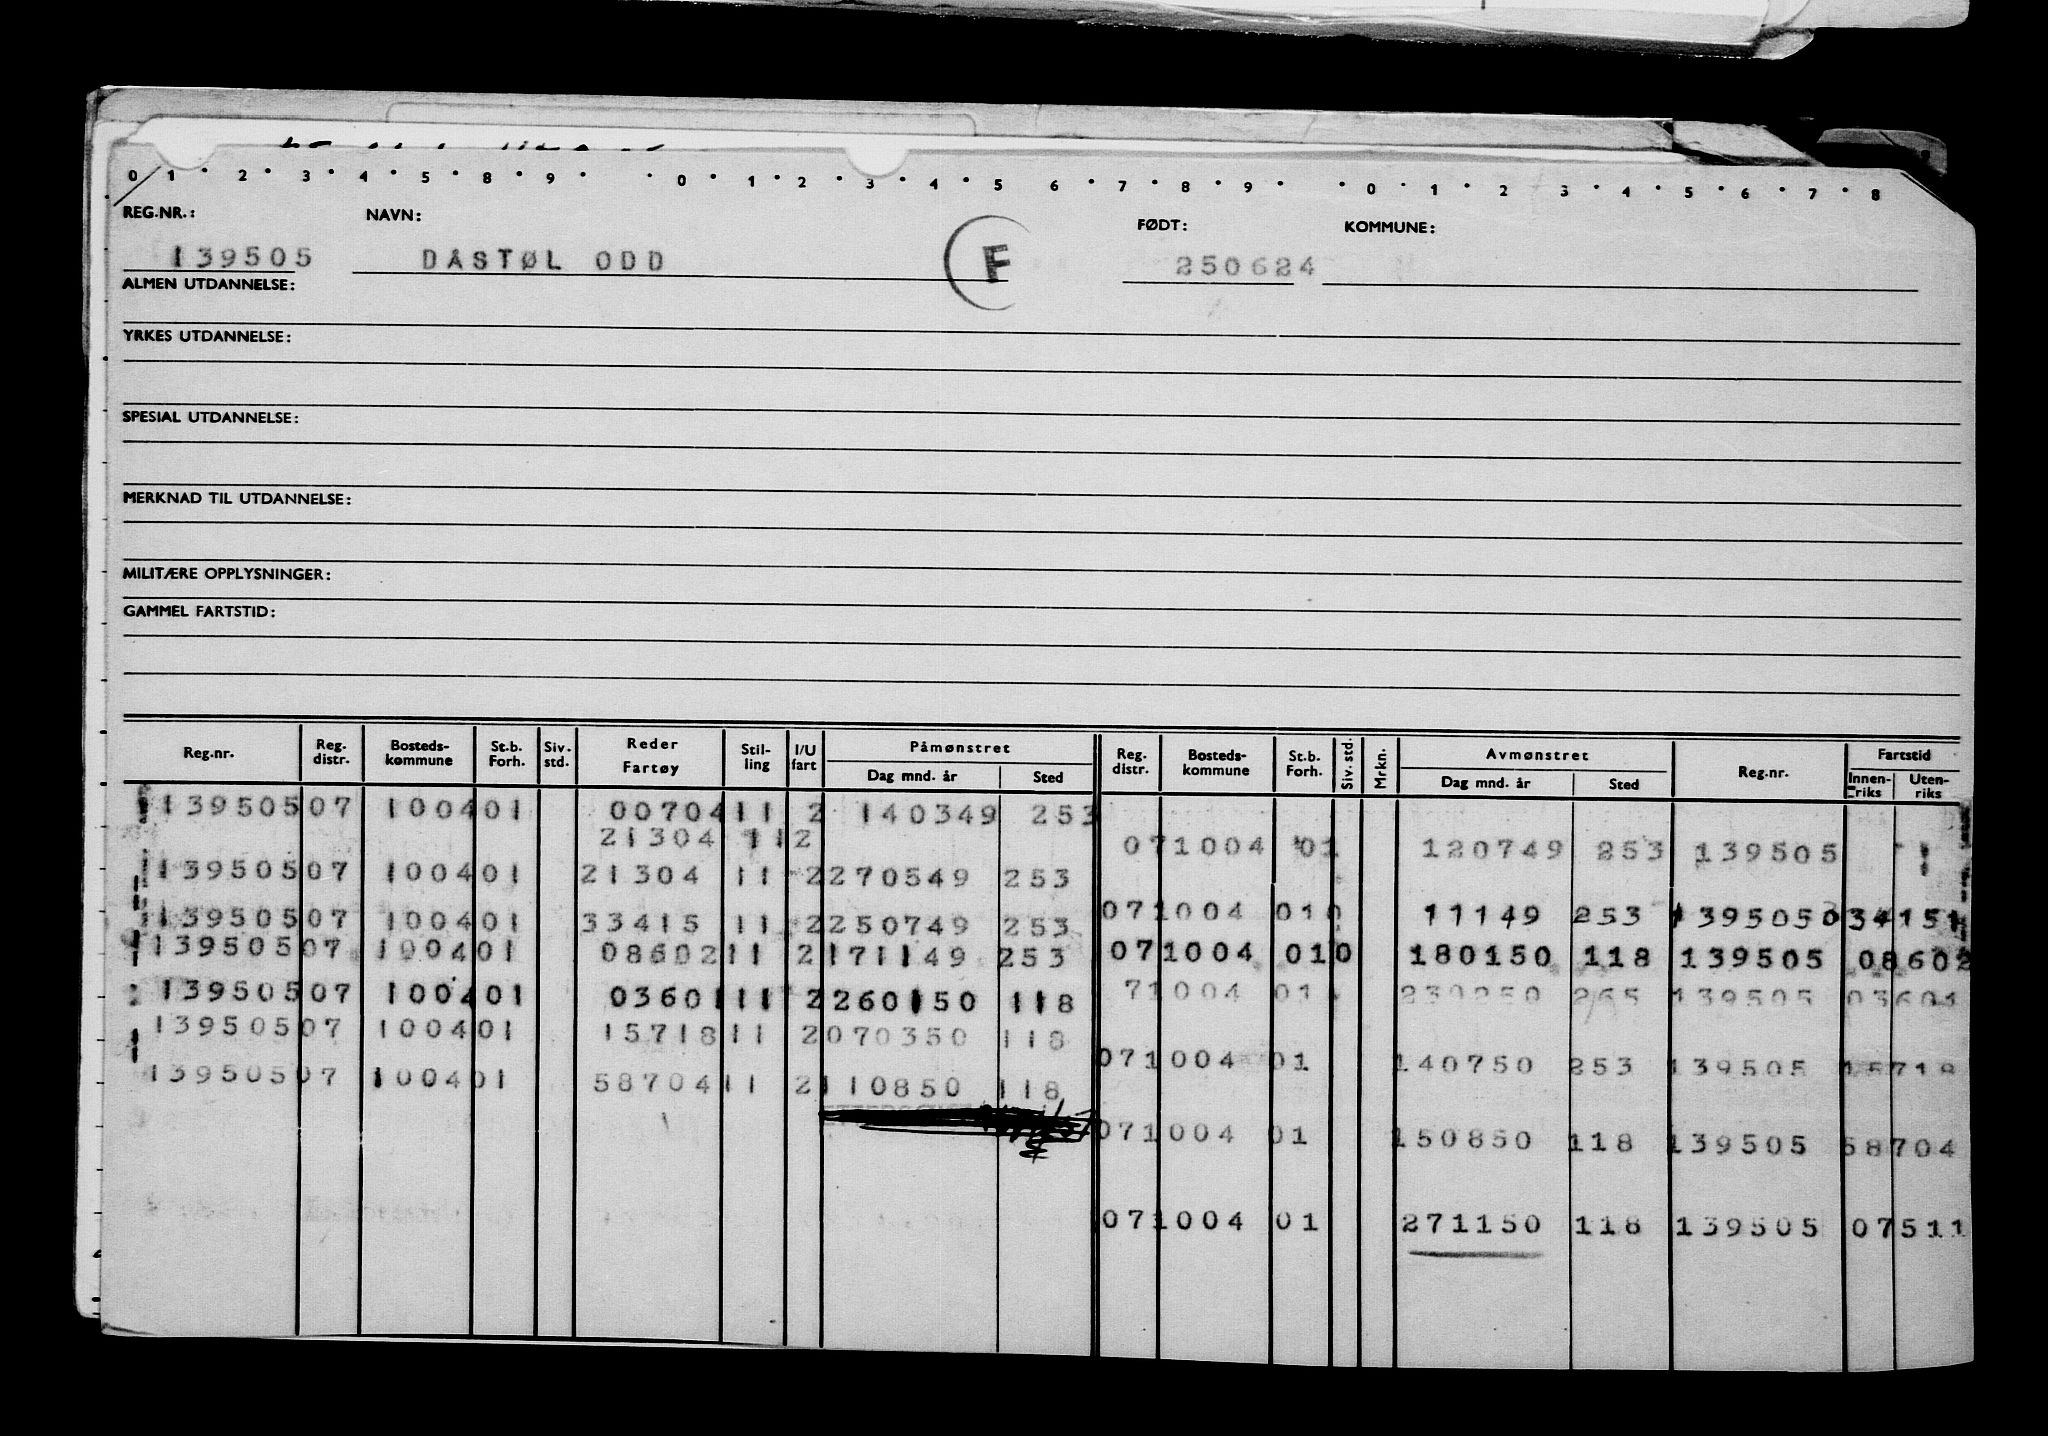 0 1 · 2 · 3 · 4 · 5 · 8 · 9 · · 0 · 1 · 2 · 3 · 4 · 5 6 · 7 · 8 · 9 · · 0 · 1 · 2 3 · 4 · 5 · 6 · 7 · 8
REG.NR.: NAVN: FØDT: KOMMUNE:
139505 DASTØL ODD F 250624
ALMEN UTDANNELSE:
YRKES UTDANNELSE:
SPESIAL UTDANNELSE:
MERKNAD TIL UTDANNELSE:
MILITÆRE OPPLYSNINGER:
GAMMEL FARTSTID:
Reg.nr. Reg. distr. Bosteds-kommune St.b. Forh. Siv. std. Reder Fartøy Stil-ling I/U fart Påmønstret Dag mnd. år Sted Reg. distr. Bosteds-kommune St.b. Forh. Siv. std. Mrkn. Avmønstret Dag mnd. år Sted Reg.nr. Fartstid Innen-riks Uten-riks
139505 07 1004 01 00704 11 2 140349 253
21304 11 2 07 1004 01 120749 253 139505
139505 07 1004 01 21304 11 2 270549 253
139505 07 1004 01 33415 11 2 250749 253 07 1004 010 11149 253 139505 034151
139505 07 1004 01 08602 11 2 171149 253 07 1004 010 180150 118 139505 08602
139505 07 1004 01 03601 11 2 260150 118 71004 01 230250 265 139505 03601
139505 07 1004 01 15718 11 2 070350 118
07 1004 01 140750 253 139505 15718
139505 07 1004 01 58704 11 2 110850 118
07 1004 01 150850 118 139505 58704
07 1004 01 271150 118 139505 07511